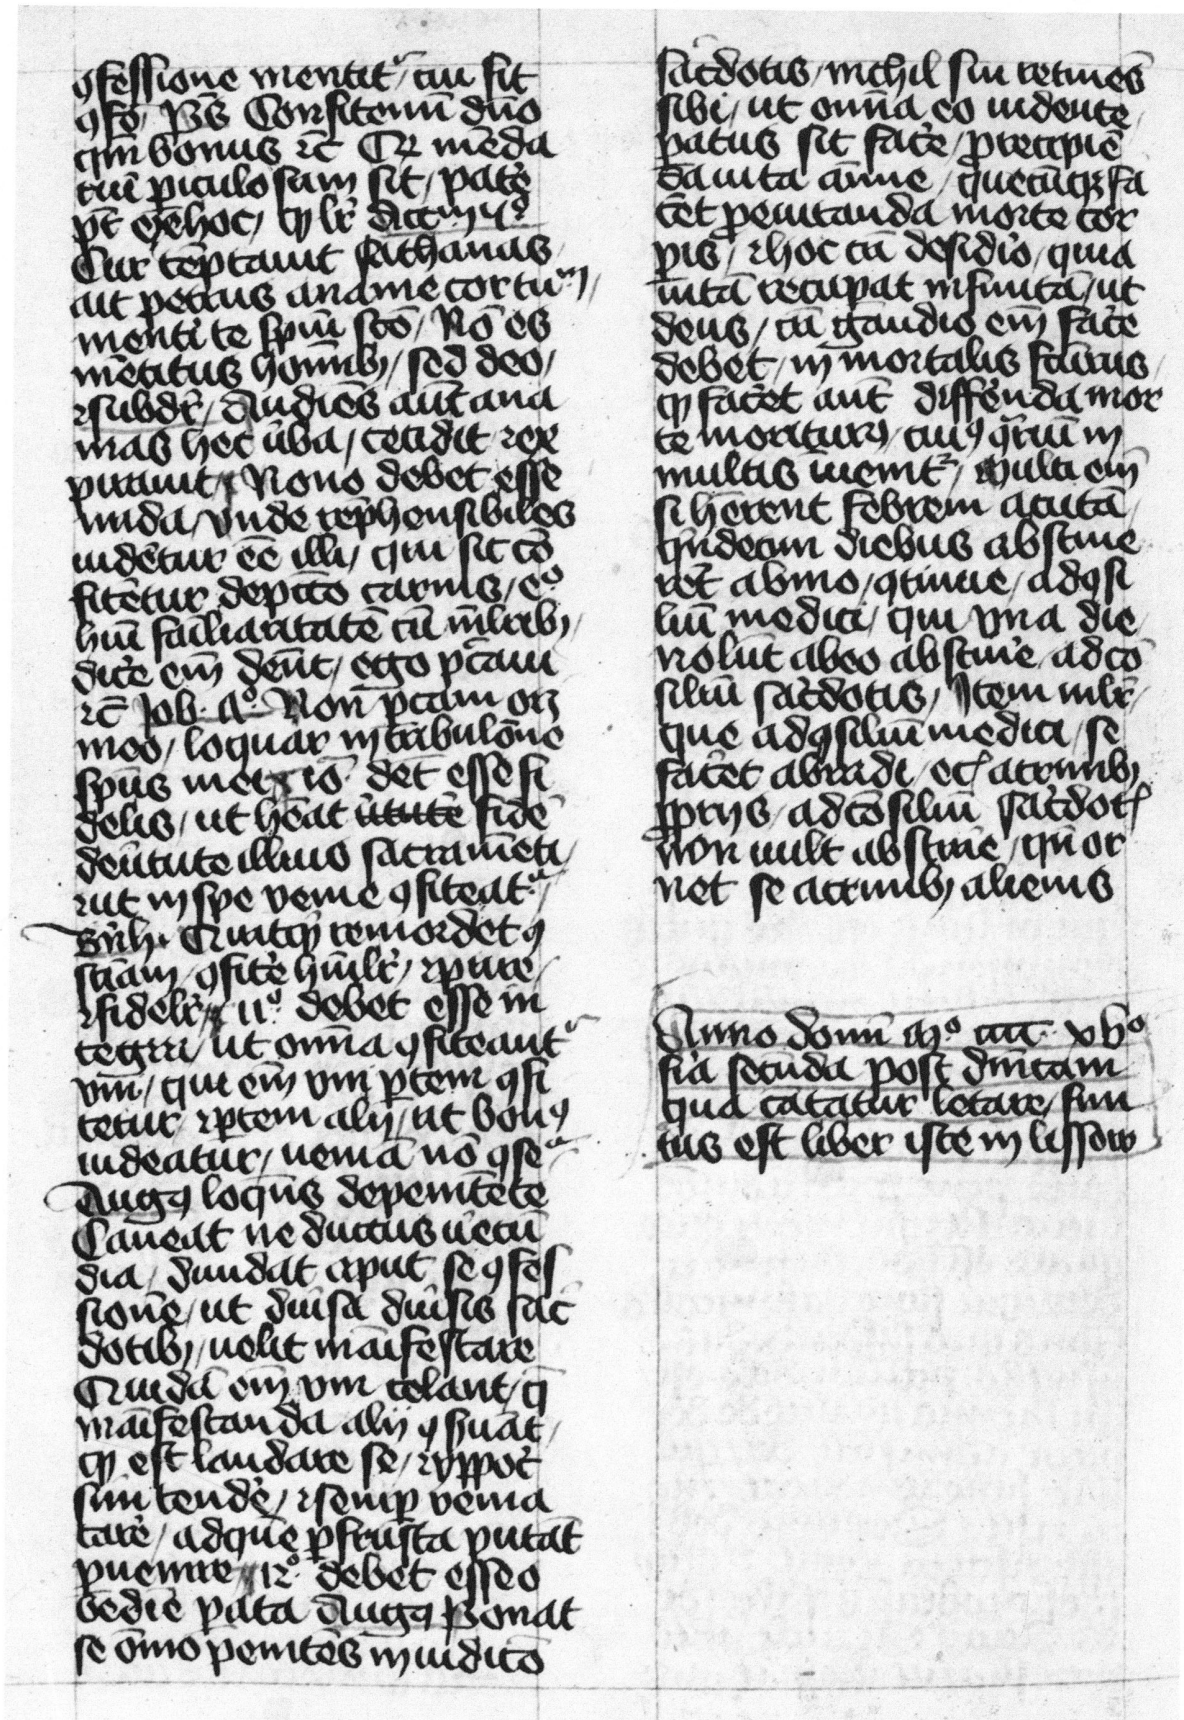 ꝯfessione mentit᷑ cū sit
ꝯfō, p̄s Confitemī dn̄o
qm̄ bonus ⁊c̄ Et mēda
cūi ꝑiculosum sit, patꝫ
dictum
Cur tēptauit sathanas,
ait petrus anania cor tuū,
mentiri te spūi scō, Nō es
mētitus homīꝫ, sed deo,
⁊subdr̄, Audiēs aūt ana
nias hec ūba, cecidit ⁊ex
pirauit, Nono debet esse
nuda, vnde rep̄hensibiles
uidētur ēe illi, qui sic cō
fitētur de pctō carnis, eº
hūi familiaritatē cū mlīerib;
dicē em̄ debēt, ego pctāui
⁊c̄ Job
meo, loquar in tabulōne
spūs mei, iō debet esse fi
delis, ut hēat ūtutē fidē
de ūtute illius sacramēti,
⁊ut in spe venie ꝯfiteat᷑
Bern̄h. Quitꝗꝫ remordet ꝯ
sciām, ꝯfitē humilr̄, ⁊pure,
⁊fidelr̄, 11º debet esse in
tegra, ut omīa ꝯfiteant᷑
vni, qui em̄ vni ptem ꝯfi
tetur, ⁊ptem alij, ut bonꝰ
uideatur, ueniā nō ꝯse᷑
Augꝰ loquēs de penitēte
Caueat ne ductus uecū
dia, diuidat aput se ꝯfes
sionē, ut diūsa diūsis sac̄
dotib;, uelit māifestare
Quidā em̄ vni celant, q̄
māifestanda alij ꝯseruāt,
qꝫ est laudare se, ⁊yppoc̄
sim tendē, ⁊semp venia
carē, ad quē p frusta putāt
puenire, 12º debet esse o
bediē pata Augꝰ Ponat
se ōmo penitēs in iudicō
sac̄dotis, nichil sui retinēs
sibi, ut omīa eo iubente,
patus sit facē, p recipiē
da uita anīe, quecūqꝫ fa
cēt p euitanda morte cor
pis, ⁊hoc cū desidio, quia
uitā recupat infinitā, ut
deus, cū gaudio em̄ facē
debet, immortalis futurus,
qꝫ facēt aūt differenda mor
te moriturꝰ, cuiꝰ ꝯriū in
multis īuenit᷑, Multi em̄
si hērent febrem acutā,
qīndecim diebus abstine
rēt a vino, ꝯtinue, ad ꝯsi
liū medici, qui vna die
nolūt ab eo abstinē, ad cō
siliū sac̄dotis, Item mlr̄,
que ad ꝯsiliū medici, se
facēt abradi, ⁊c̄ a crinib;
pprijs, ad cōsiliū sac̄dot᷑
non uult abstinē, quī or
net se acrinib; alienis
Anno domī Mº cccc xvº
fīa secūda post dūicam
qua cātatur letare, fini
tus est liber iste in lissow